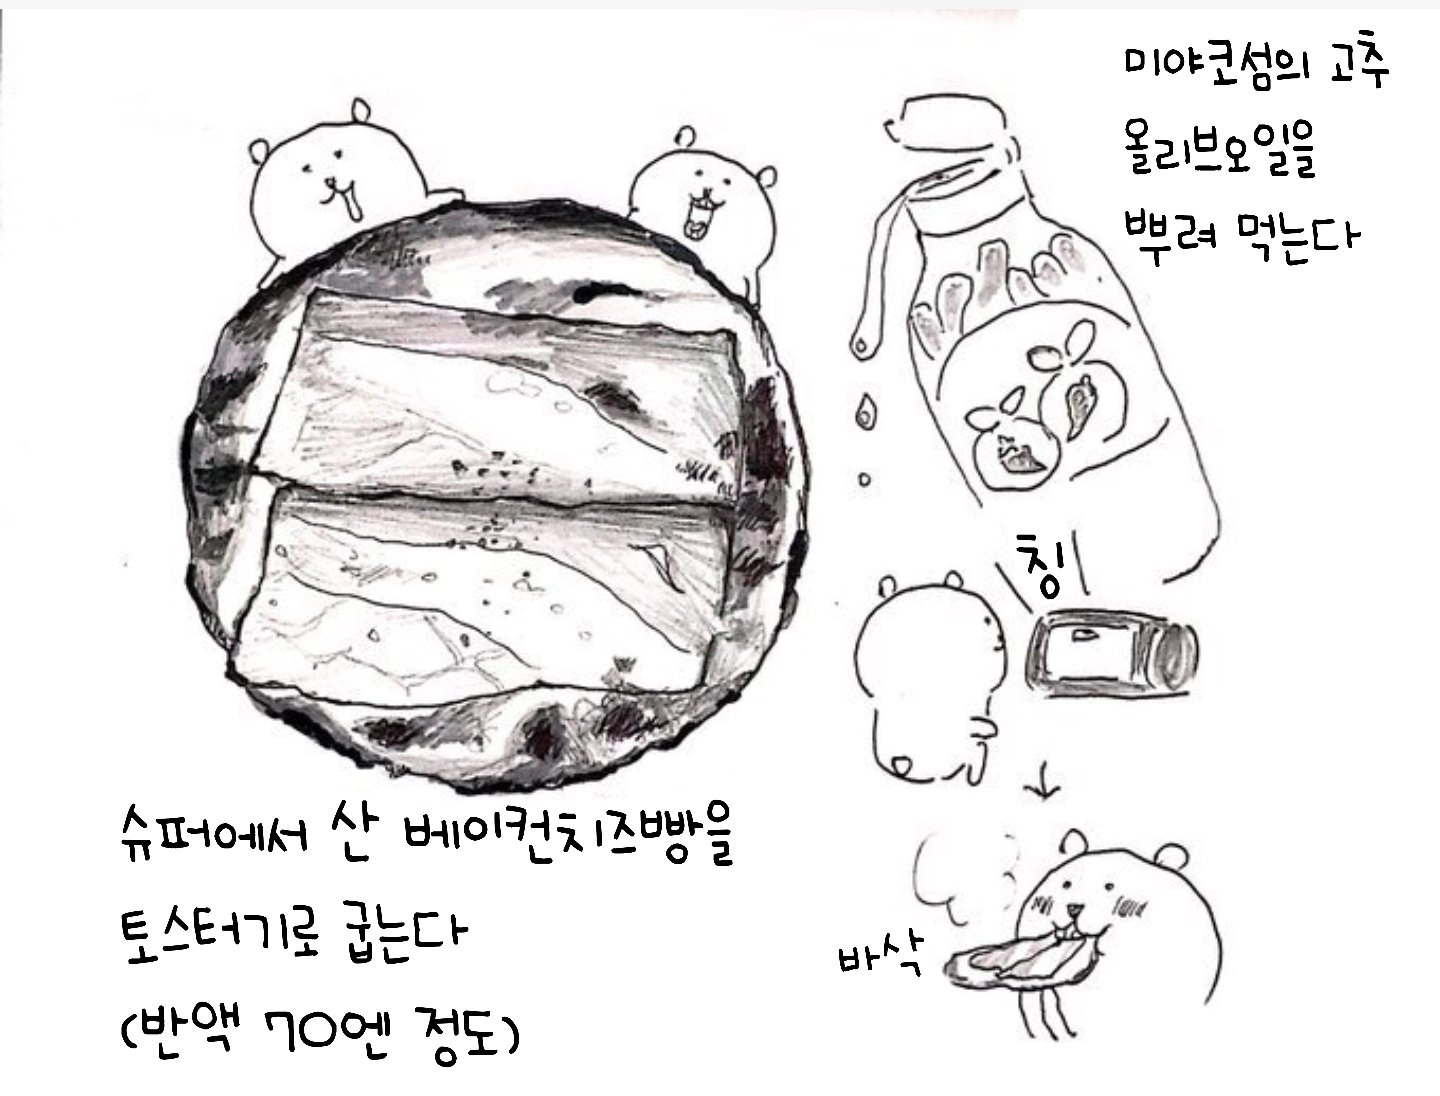 미야코섬의 고추
올리브오일을
뿌려 먹는다
칭
바삭
슈퍼에서 산 베이컨치즈빵을
토스터기로 굽는다
(반액 70엔 정도)